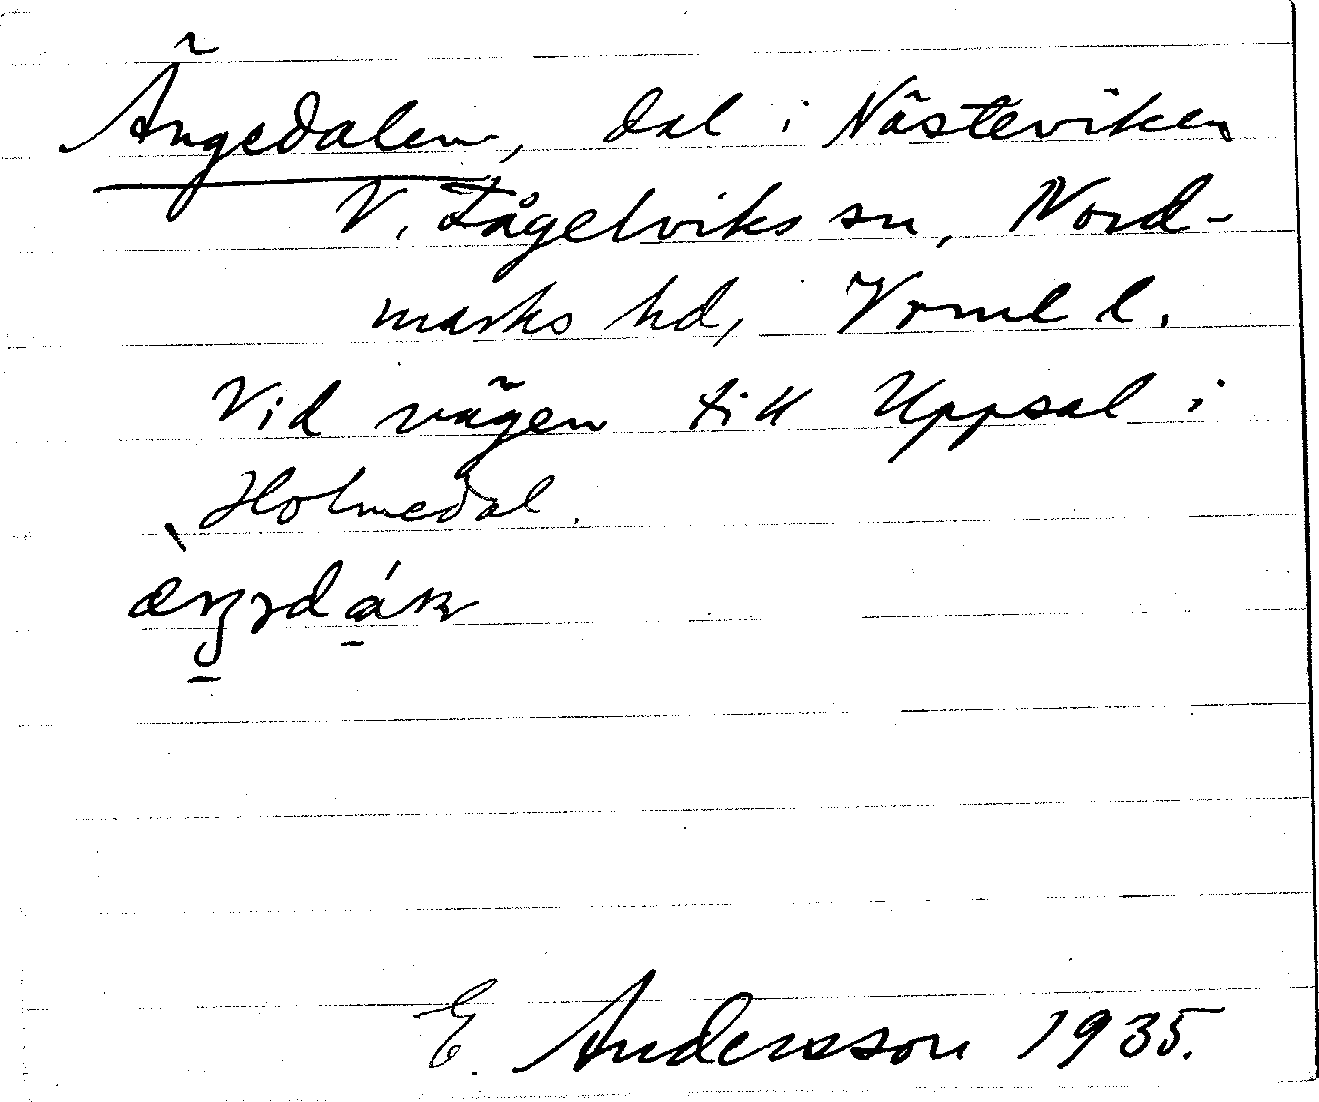 Ängedalen, dal i Nästeviken
V. Fågelviks sn, Nord-
marks hd, Vrml l.
Vid vägen till Uppsal i
Holmedal.
E. Andersson 1935.